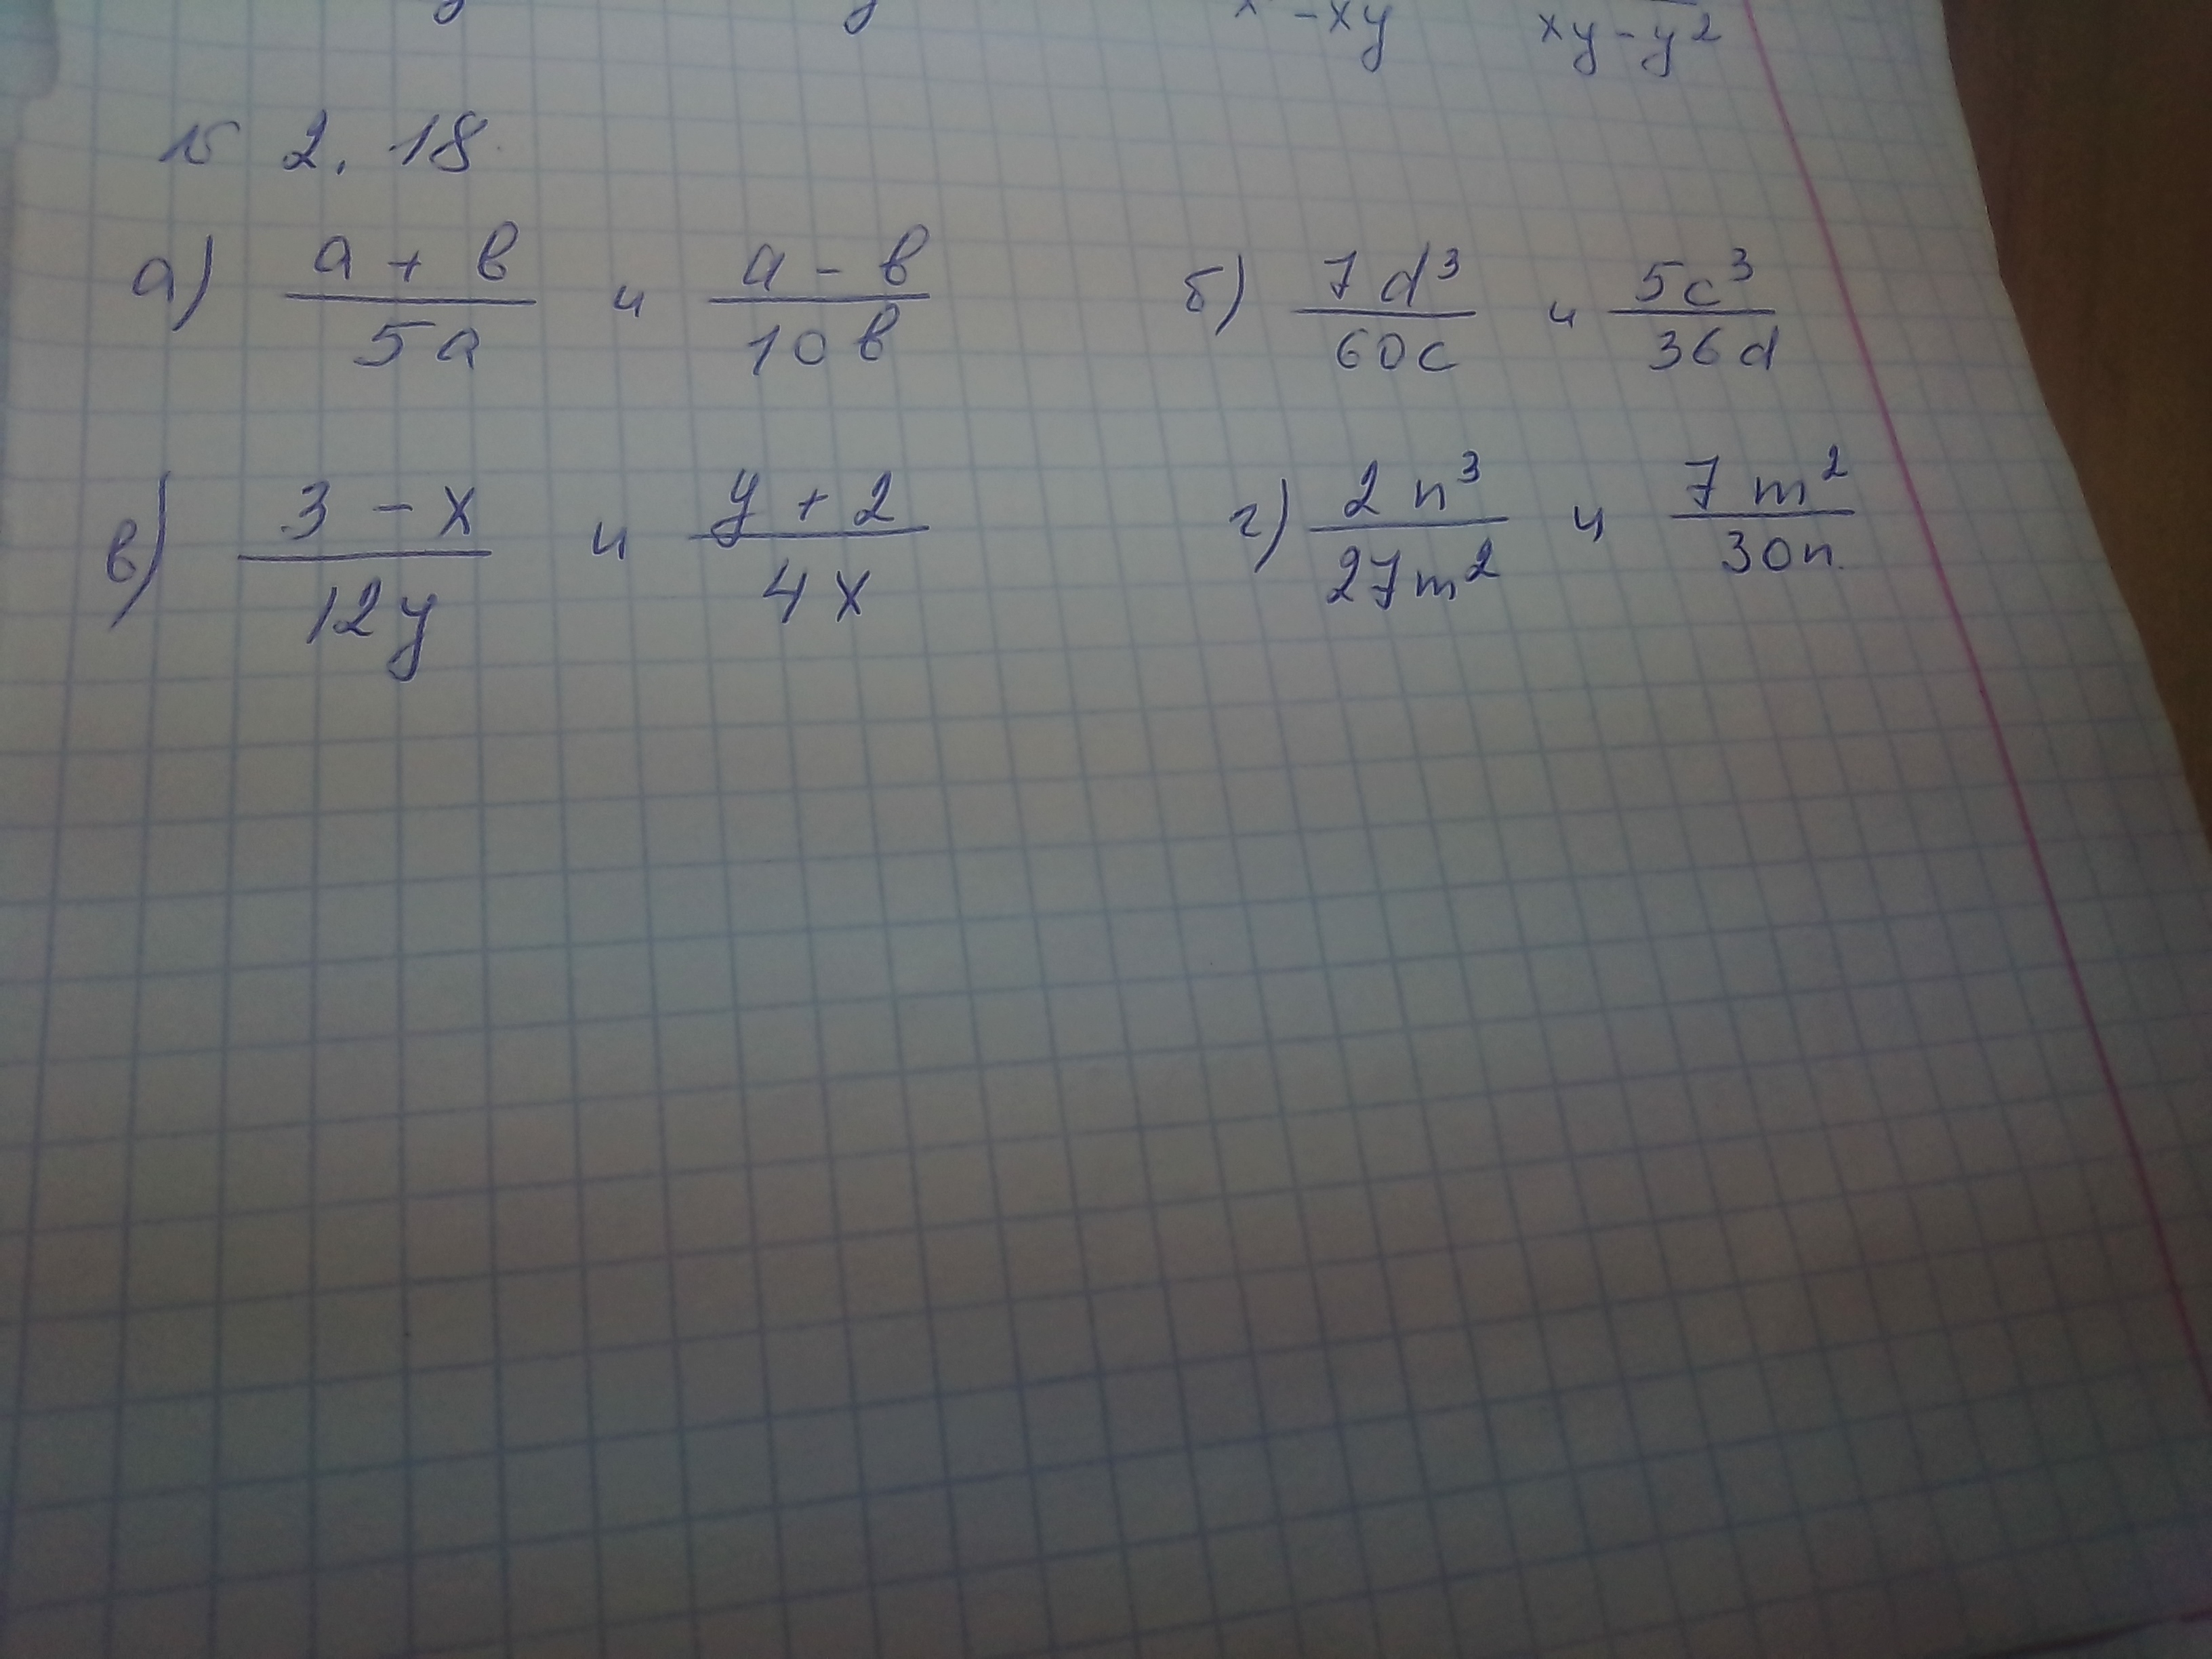 x - xy xy - y²
№ 2.18
а) a + b / 5a и a - b / 10b б) 7d³ / 60c и 5c³ / 36d
в) 3 - x / 12y и y + 2 / 4x г) 2n³ / 27m² и 7m² / 30n